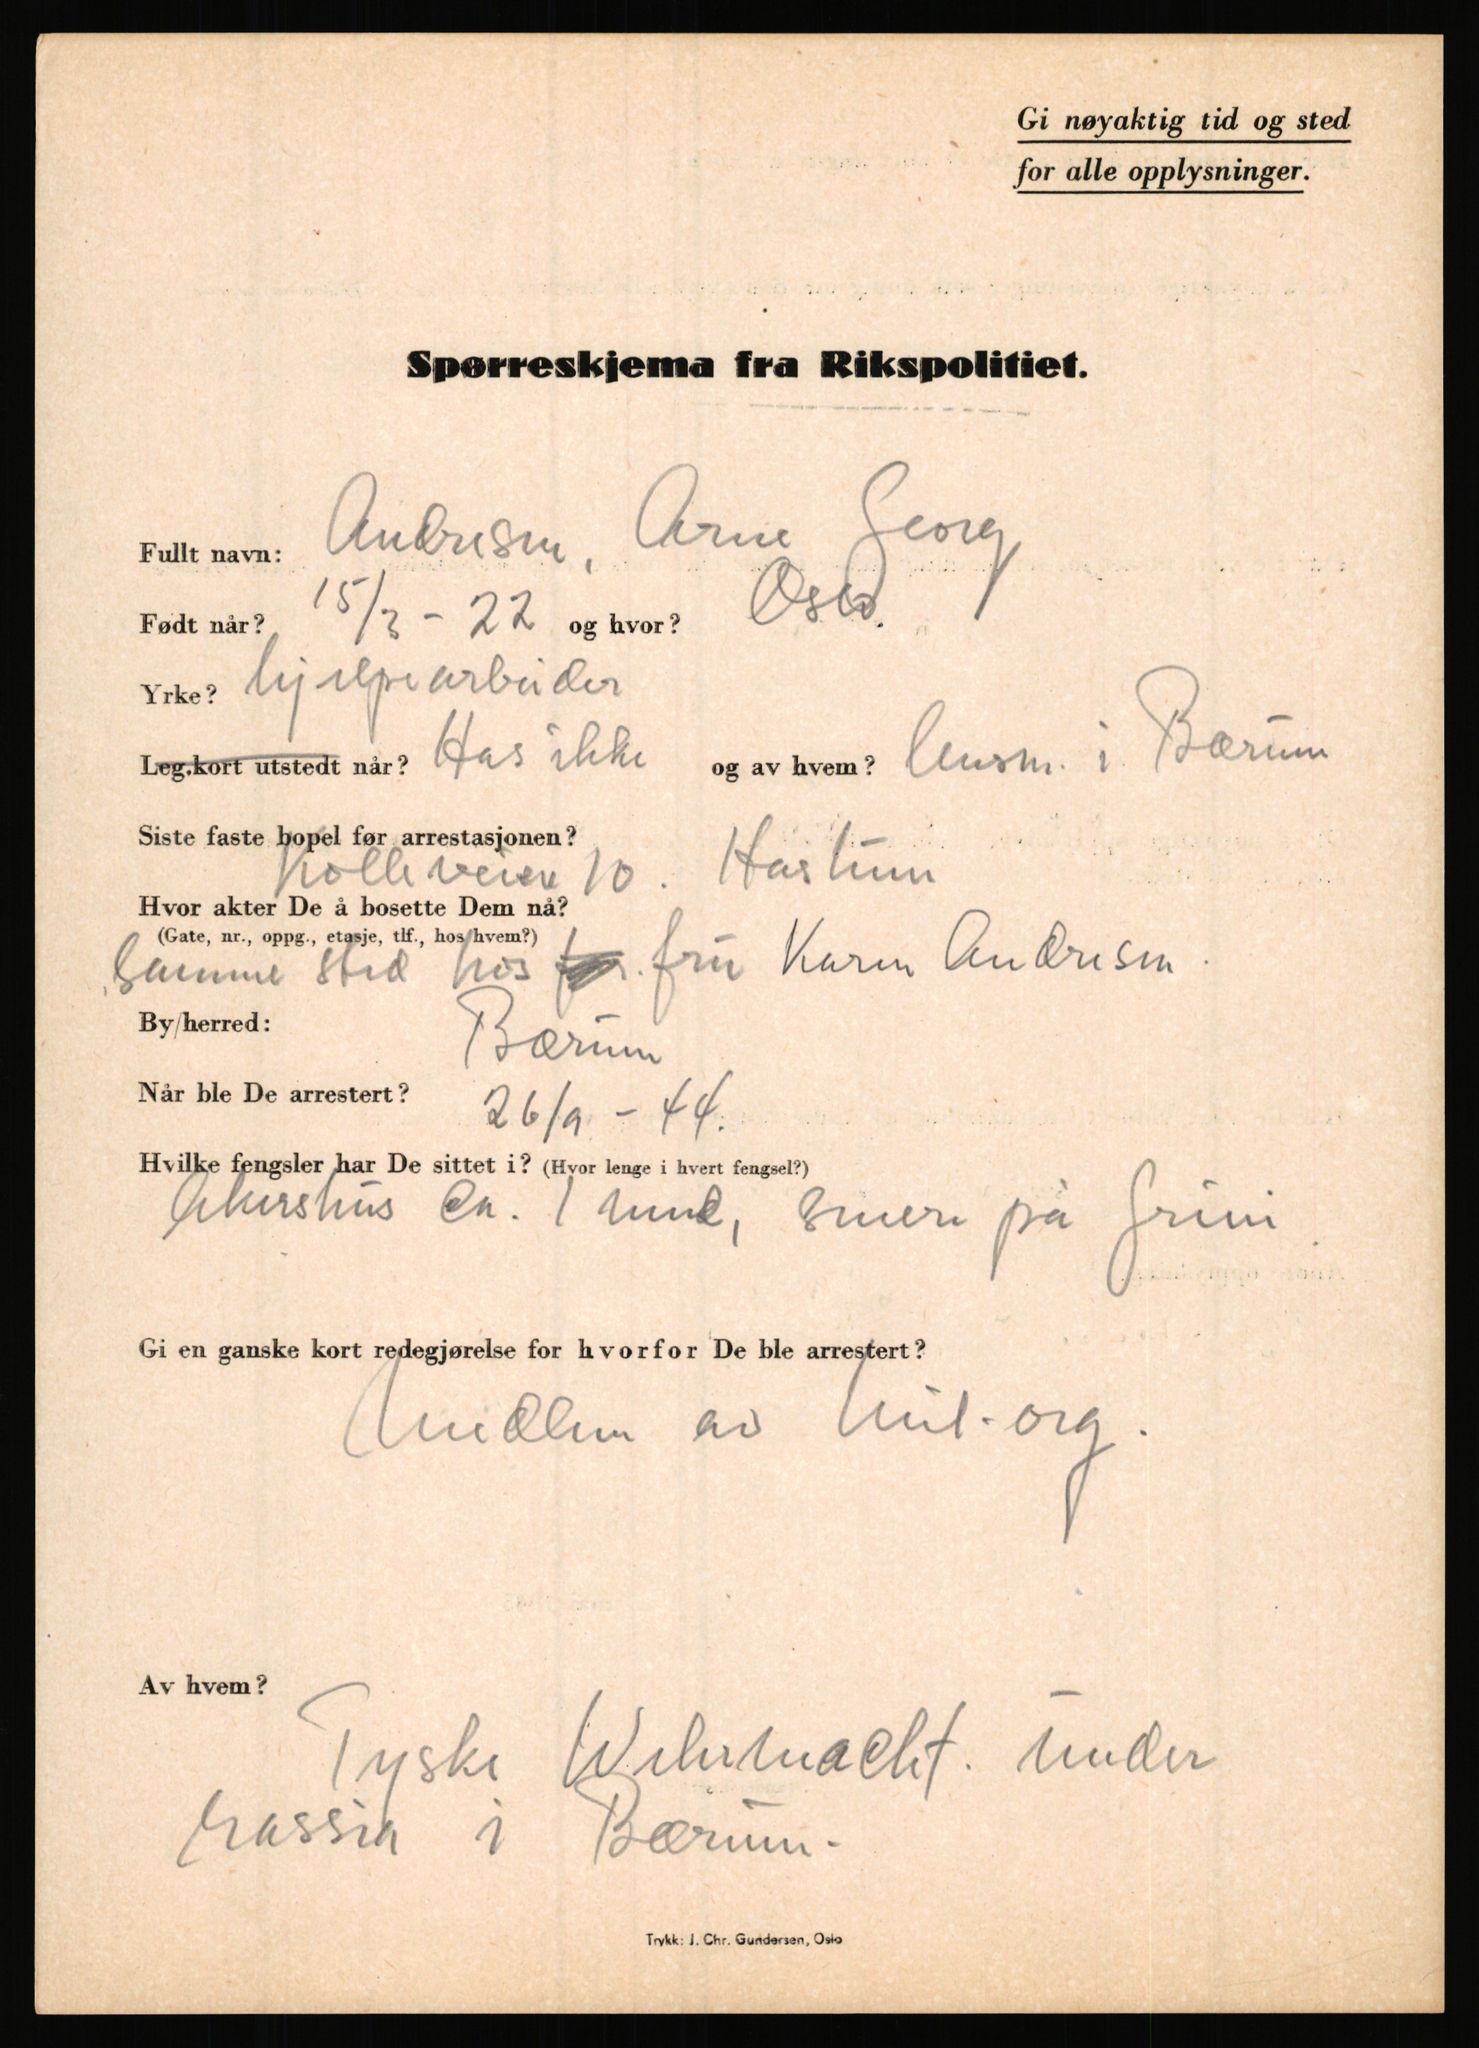 Gi nøyaktig tid og sted
for alle opplysninger.
Spørreskjema fra Rikspolitiet.
Fullt navn: Andresen, Arne Georg
Født når? 15/3 - 22 og hvor? Oslo.
Yrke? hjelpearbeider
Leg.kort utstedt når? Has ikke og av hvem? lensm. i Bærum
Siste faste bopel før arrestasjonen?
Kolleveien 10. Haslum
Hvor akter De å bosette Dem nå?
(Gate, nr., oppg., etasje, tlf., hos hvem?)
Samme sted hos fru Karen Andresen.
By/herred: Bærum
Når ble De arrestert? 26/9 - 44.
Hvilke fengsler har De sittet i? (Hvor lenge i hvert fengsel?)
Akershus ca. 1 mnd, senere på Grini
Gi en ganske kort redegjørelse for hvorfor De ble arrestert?
Medlem av Mil. org.
Av hvem?
Tyske Wehrmacht. under
rassia i Bærum.
Trykk: J. Chr. Gundersen, Oslo